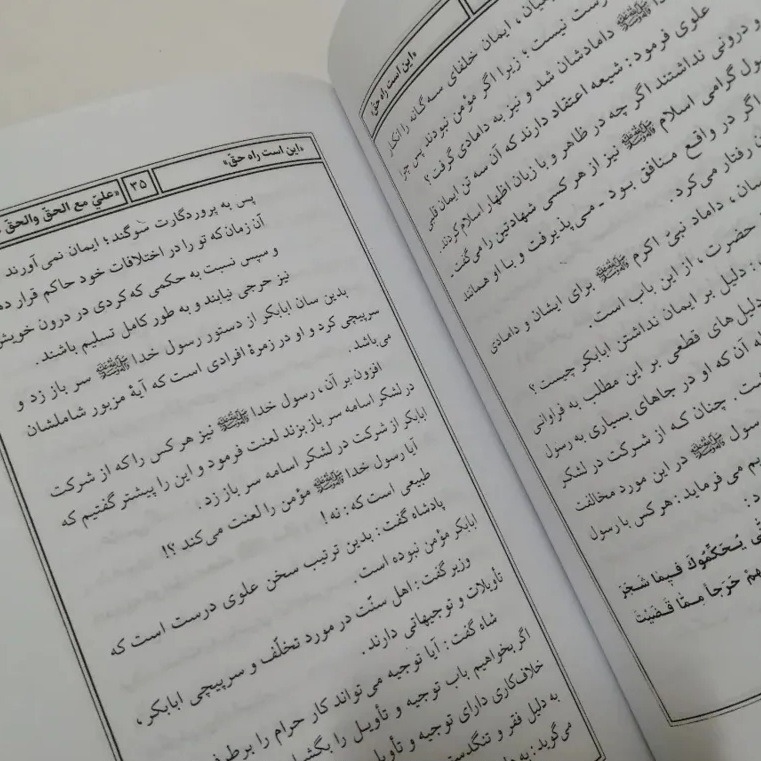 «این است راه حق»
خدا ﷺ دامادشان شد و نیز به دامادی گرفت؟
علوی فرمود: شیعه اعتقاد دارند که آن سه تن ایمان قلبی
و درونی نداشتند اگر چه در ظاهر و با زبان اظهار اسلام کردند.
رسول گرامی اسلام ﷺ نیز از هر کسی شهادتین را می‌گفت.
اگر در واقع منافق بود - می‌پذیرفت و با او همانند
رفتار می‌کرد.
داماد نبیّ اکرم ﷺ برای ایشان و دامادی
حضرت، از این باب است.
: دلیل بر ایمان نداشتن ابابکر چیست؟
دلیل های قطعی بر این مطلب به فراوانی
آن که او در جاهای بسیاری به رسول
چنان که از شرکت در لشکر
رسول ﷺ در این مورد مخالفت
می فرماید: هر کس با رسول
یُحَکِّمُوكَ فِیمَا شَجَرَ
حَرَجاً مِمَّا قَضَیْتَ
«این است راه حقّ»
۳۵
«علیّ مع الحقّ والحقّ
پس به پروردگارت سوگند؛ ایمان نمی آورند
آن زمان که تو را در اختلافات خود حاکم قرار
و سپس نسبت به حکمی که کردی در درون خویش
نیز حرجی نیابند و به طور کامل تسلیم باشند.
بدین سان ابابکر از دستور رسول خدا ﷺ سر باز زد و
سرپیچی کرد و او در زمرهٔ افرادی است که آیهٔ مزبور شاملشان
می باشد.
افزون بر آن، رسول خدا ﷺ نیز هر کس را که از شرکت
در لشکر اسامه سر باز بزند لعنت فرمود و این را پیشتر گفتیم که
ابابکر از شرکت در لشکر اسامه سر باز زد.
آیا رسول خدا ﷺ مؤمن را لعنت می‌کند؟!
طبیعی است که: نه!
پادشاه گفت: بدین ترتیب سخن علوی درست است که
ابابکر مؤمن نبوده است.
وزیر گفت: اهل سنّت در مورد تخلّف و سرپیچی ابابکر،
تأویلات و توجیهاتی دارند.
شاه گفت: آیا توجیه می تواند کار حرام را
اگر بخواهیم باب توجیه و تأویل را
خلاف‌کاری دارای توجیه و
به دلیل فقر و
می‌گوید: